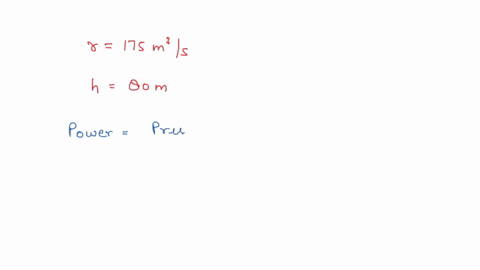 r = 175 m³/s
h = 80 m
Power = Pru